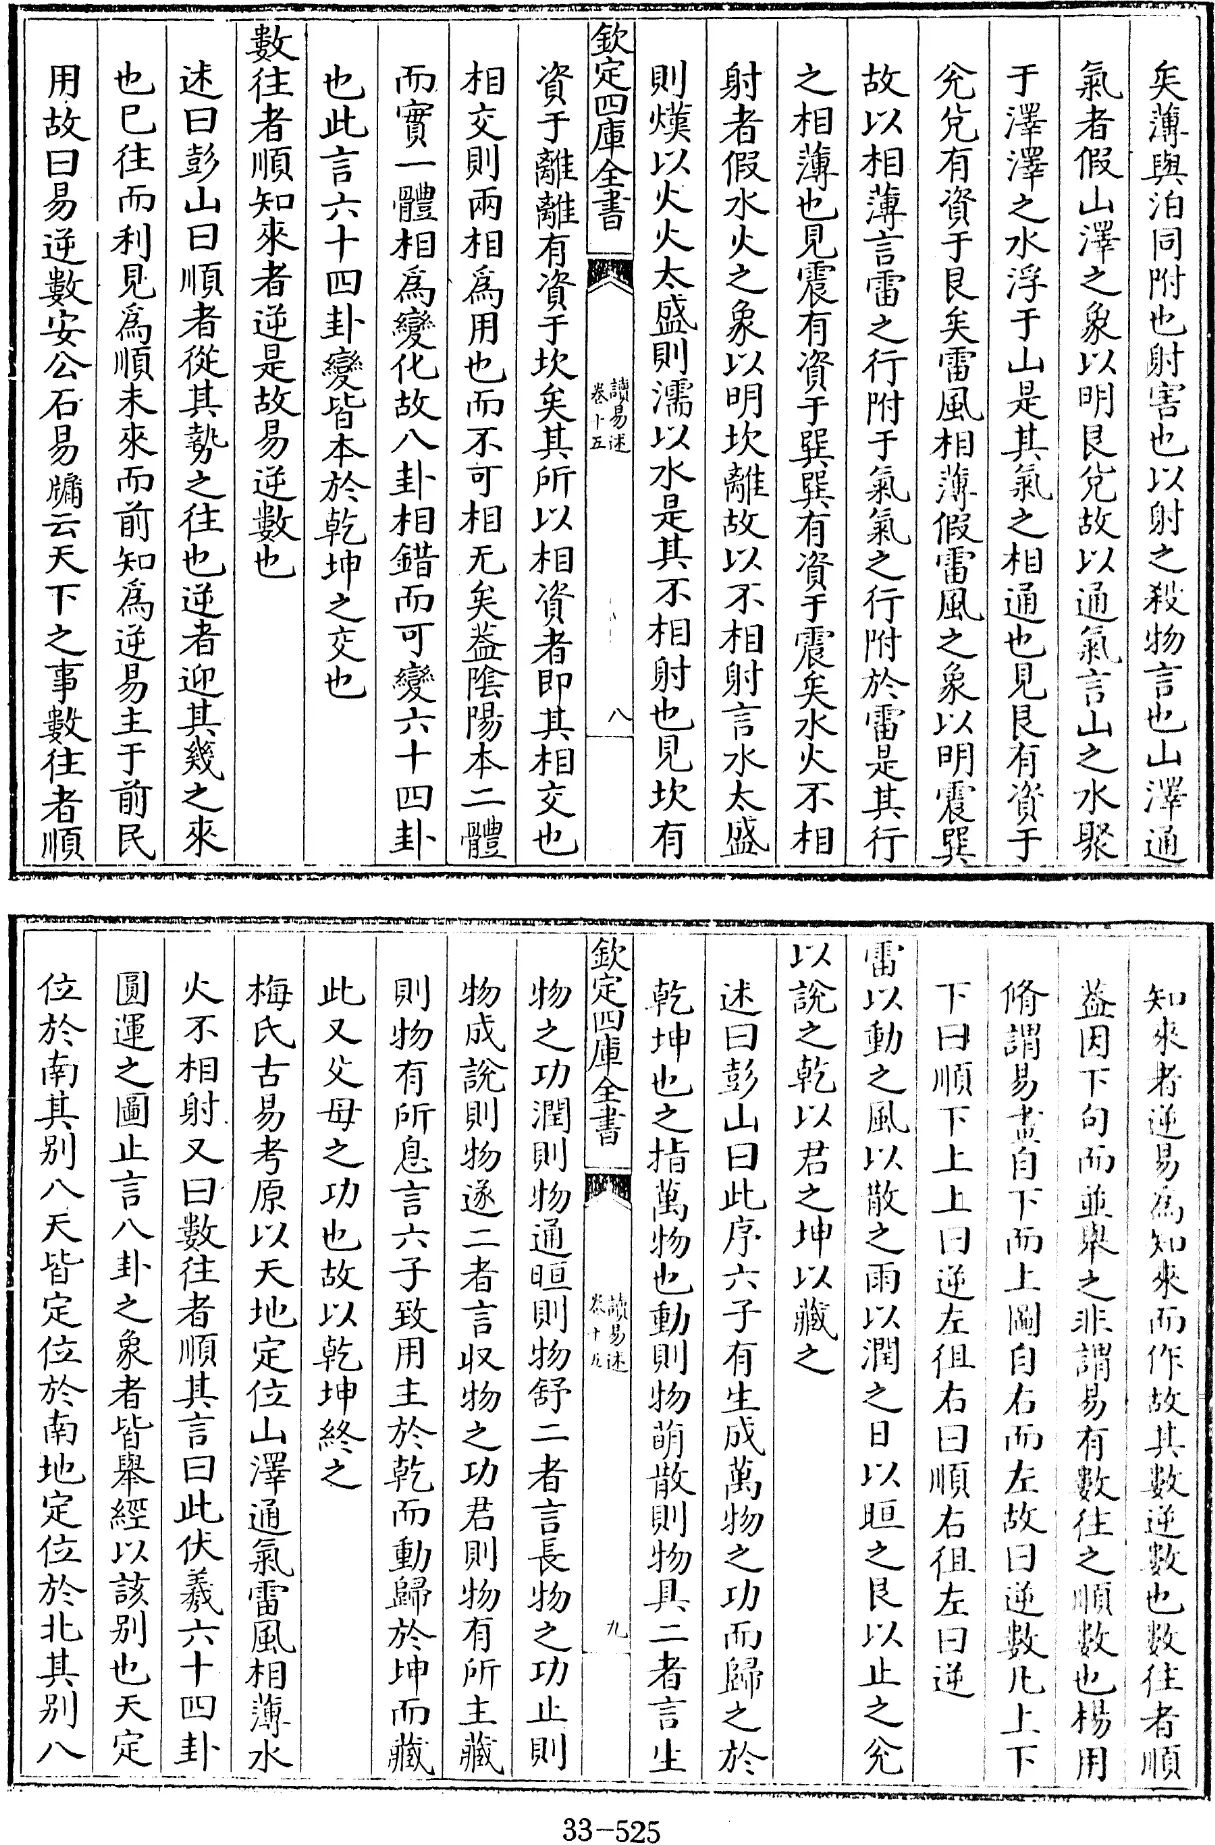 矣薄與泊同附也射害也以射之殺物言也山澤通
氣者假山澤之象以明艮兌故以通氣言山之水聚
于澤澤之水浮于山是其氣之相通也見艮有資于
兌兌有資于艮矣雷風相薄假雷風之象以明震巽
故以相薄言雷之行附于氣氣之行附於雷是其行
之相薄也見震有資于巽巽有資于震矣水火不相
射者假水火之象以明坎離故以不相射言水太盛
則熯以火火太盛則濡以水是其不相射也見坎有
欽定四庫全書
讀易述
卷十五
八
資于離離有資于坎矣其所以相資者即其相交也
相交則兩相為用也而不可相无矣葢陰陽本二體
而實一體相為變化故八卦相錯而可變六十四卦
也此言六十四卦變皆本於乾坤之交也
數往者順知來者逆是故易逆數也
述曰彭山曰順者從其勢之往也逆者迎其幾之來
也已往而利見為順未來而前知為逆易主于前民
用故曰易逆數安公石易牖云天下之事數往者順
知來者逆易為知來而作故其數逆數也數往者順
葢因下句而並舉之非謂易有數往之順數也楊用
脩謂易畫自下而上圖自右而左故曰逆數凡上下
下曰順下上上曰逆左徂右曰順右徂左曰逆
雷以動之風以散之雨以潤之日以晅之艮以止之兌
以說之乾以君之坤以藏之
述曰彭山曰此序六子有生成萬物之功而歸之於
乾坤也之指萬物也動則物萌散則物具二者言生
欽定四庫全書
讀易述
卷十五
九
物之功潤則物通晅則物舒二者言長物之功止則
物成說則物遂二者言收物之功君則物有所主藏
則物有所息言六子致用主於乾而動歸於坤而藏
此又父母之功也故以乾坤終之
梅氏古易考原以天地定位山澤通氣雷風相薄水
火不相射又曰數往者順其言曰此伏羲六十四卦
圓運之圖止言八卦之象者皆舉經以該別也天定
位於南其別八天皆定位於南地定位於北其別八
33-525